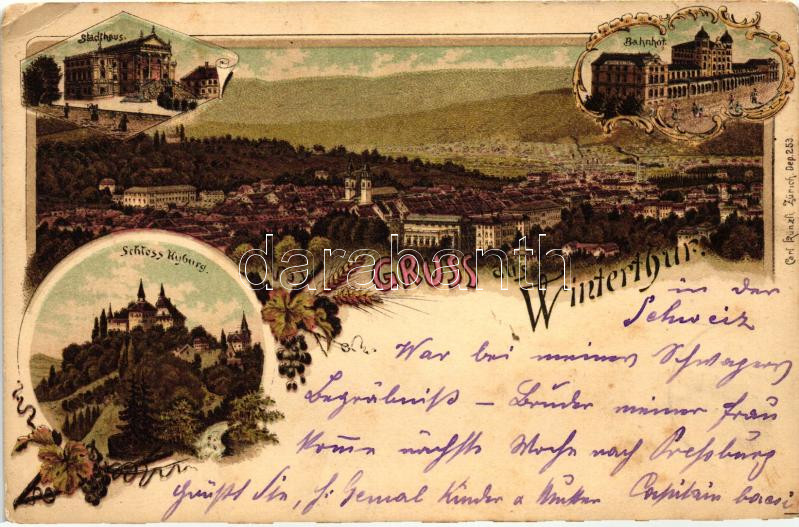 Stadthaus.
Bahnhof.
Schloss Kyburg.
Carl Künzli, Zürich, Dep. 253
darabanth
GRUSS aus
Winterthur.
in der
Schweiz
War bei meines Schwagers
Begräbniß – Bruder meiner frau
Komme nächste Woche nach Preßburg
Grüßt Sie, Gemal Kinder u Mutter Capitain bacsi